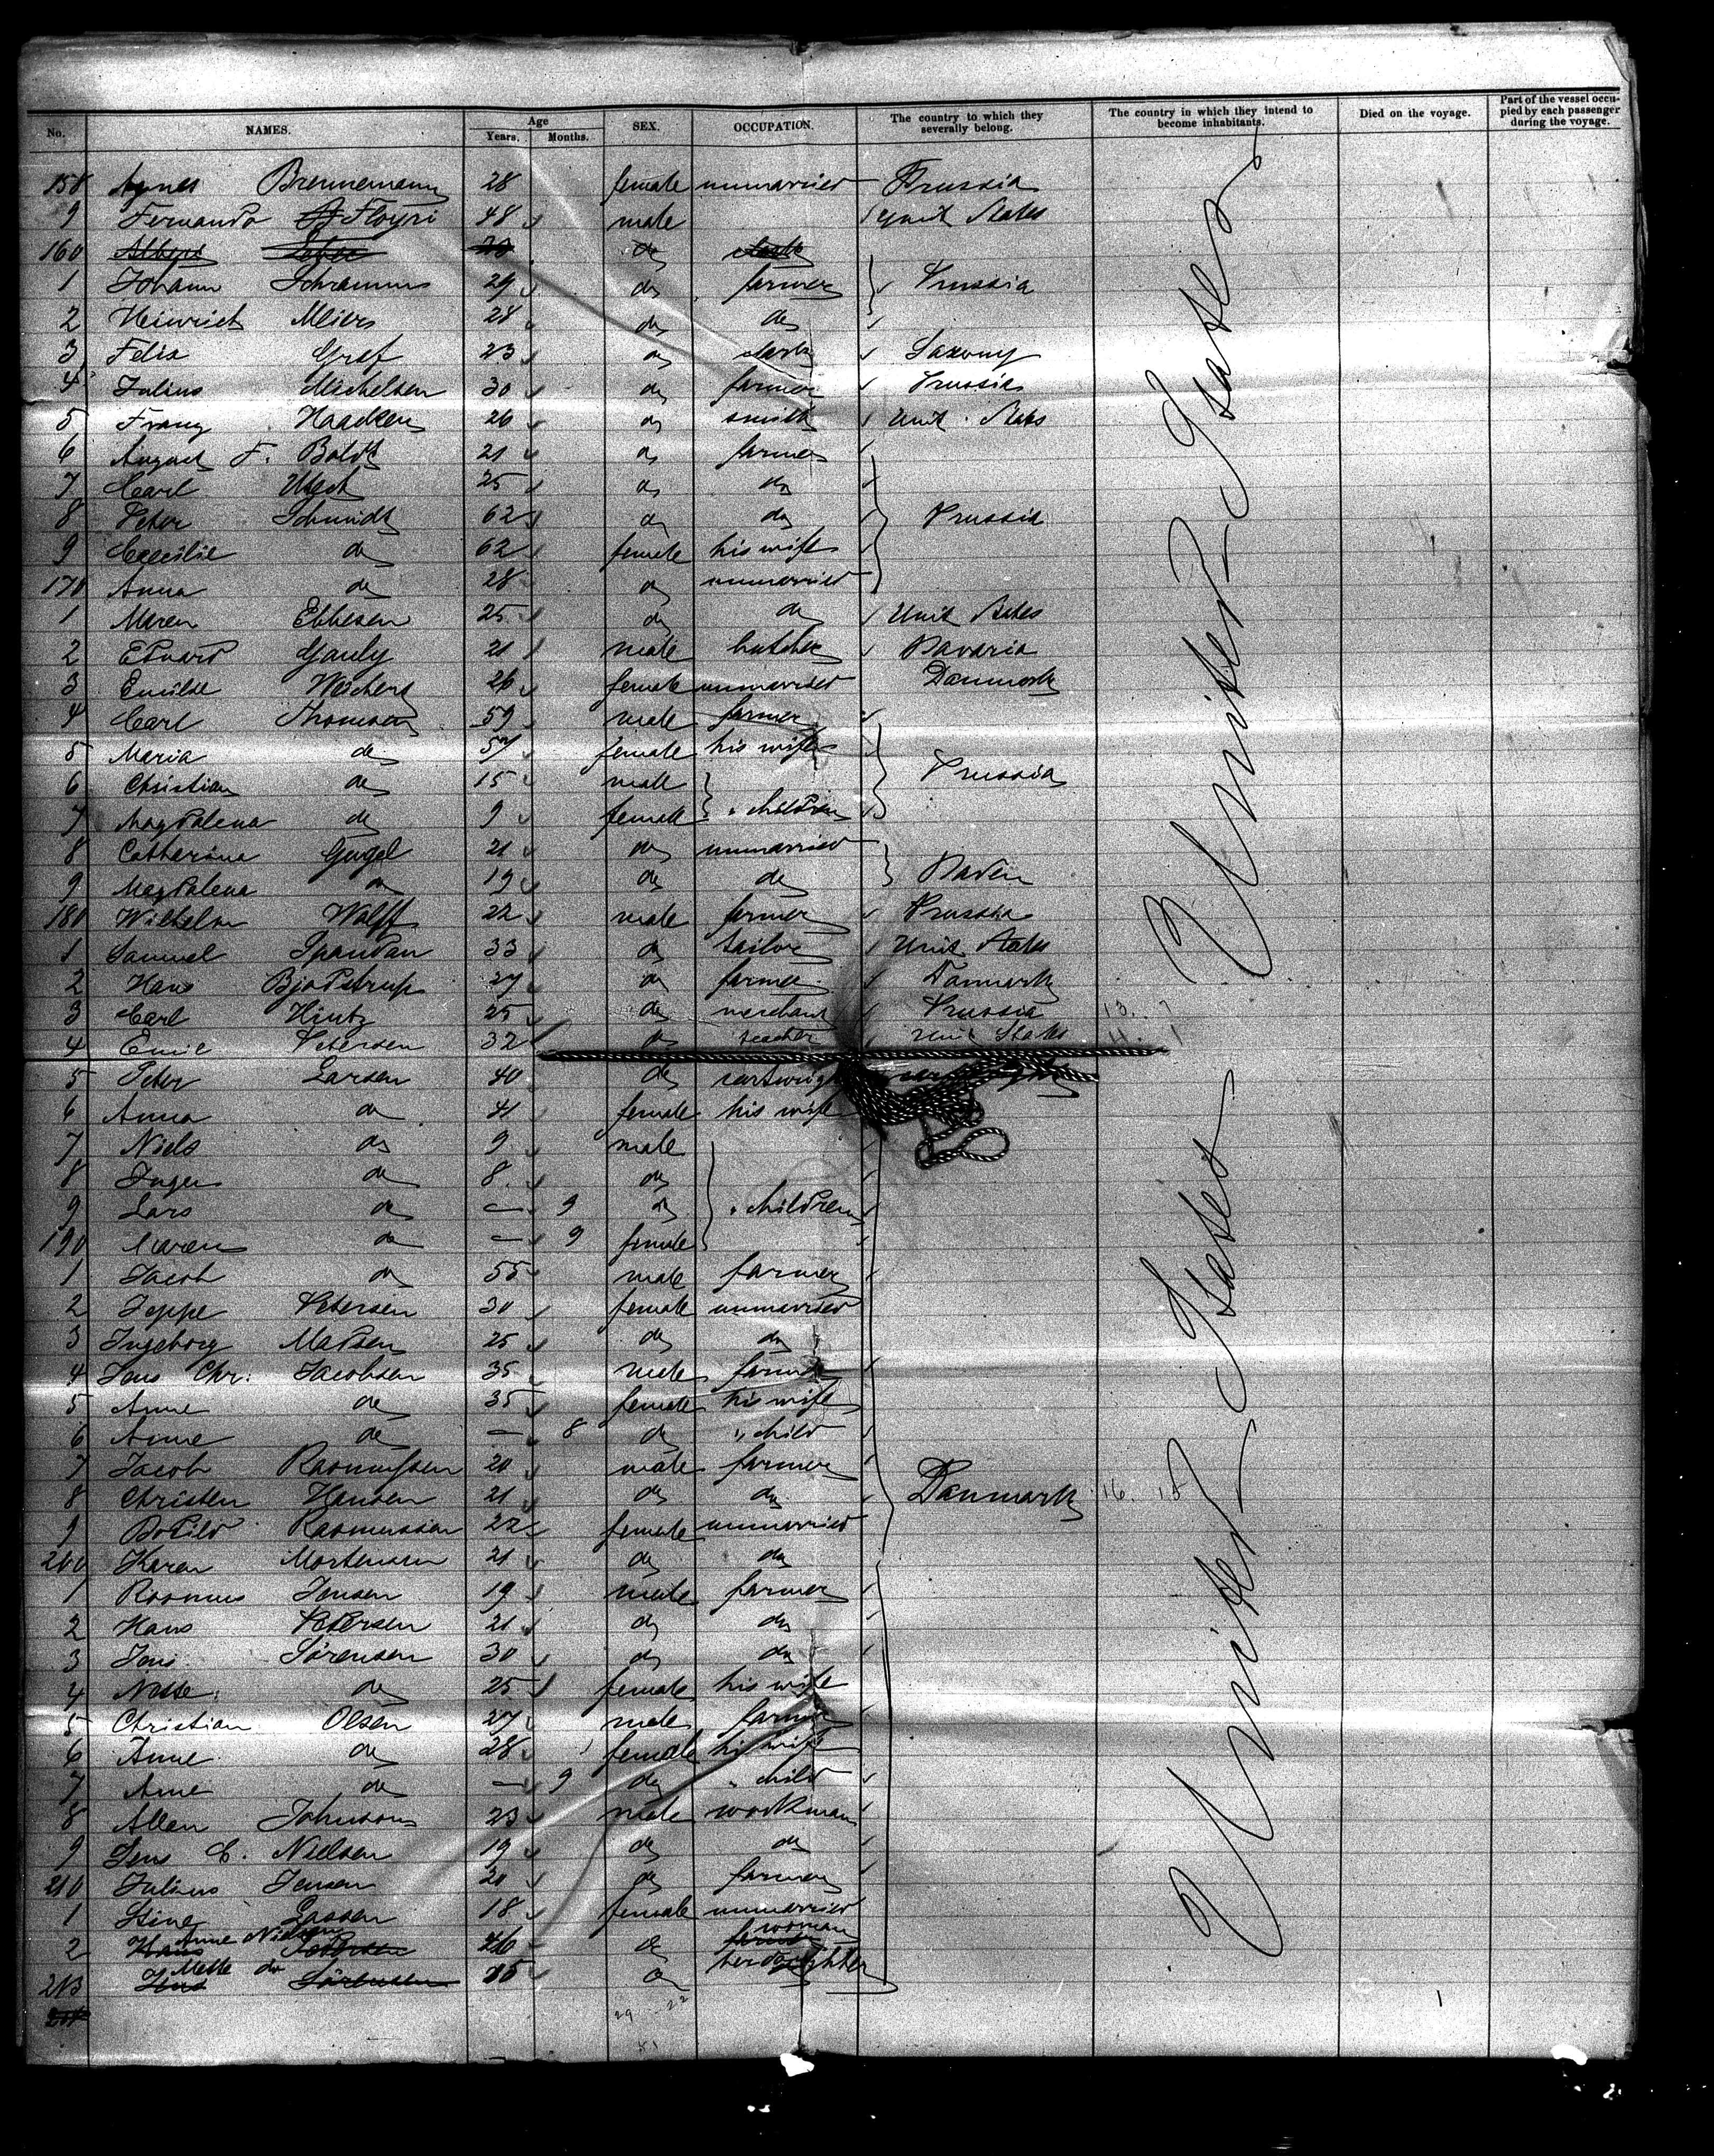 No. NAMES. Age Years. Months. SEX. OCCUPATION. The country to which they severally belong. The country in which they intend to become inhabitants. Died on the voyage. Part of the vessel occupied by each passenger during the voyage.
158 Agnes Brennemann 28 female unmarried Prussia
9 Fernando Floyri 48 male Unit States
160 do
1 Johann Schramm 29 do farmer Prussia
2 Heinrich Meier 28 do do
3 Felix Graf 23 do clerk Saxony
4 Julius Michelsen 30 do farmer Prussia
5 Franz Haacksen 26 do smith Unit. States
6 August F. Boldt 21 do farmer
7 Carl Utech 25 do do
8 Peter Schmidt 62 do do Prussia
9 Caecilie do 62 female his wife
170 Anna do 28 do unmarried
1 Maren Ebbesen 25 do do Unit States
2 Eduard Gauly 21 male butcher Bavaria
3 Emilde Wichers 26 female unmarried Danmark
4 Carl Thomsen 59 male farmer
5 Maria do 57 female his wife
6 Christian do 15 male Prussia
7 Magdalena do 9 female " children
8 Catherine Gugel 21 do unmarried
9 Magdalena do 19 do do Baden
180 Wilhelm Wolff 22 male farmer Prussia
1 Samuel Spandau 33 do tailor Unit States
2 Hans Bjodstrup 27 do farmer Danmark
3 Carl Hintz 25 do merchant Prussia
4 Emil Petersen 32 do teacher Unit States
5 Peter Larsen 40 do cartwright
6 Anna do 41 female his wife
7 Niels do 9 male
8 Inger do 8 do
9 Lars do — 9 do " children
190 Maren do — 9 female
1 Jacob do 55 male farmer
2 Jeppe Petersen 30 female unmarried
3 Ingeborg Madsen 25 do do
4 Jens Chr. Jacobsen 35 male farmer
5 Anne do 35 female his wife
6 Anne do — 8 do " child
7 Jacob Rasmussen 20 male farmer
8 Christen Hansen 21 do do Danmark
9 Bodild Rasmussen 22 female unmarried
200 Karen Mortensen 21 do do
1 Rasmus Jensen 19 male farmer
2 Hans Petersen 21 do do
3 Jens Sörensen 30 do do
4 Mette do 25 female his wife
5 Christian Olsen 27 male farmer
6 Anne do 28 female his wife
7 Ane do — 9 do " child
8 Allen Johnson 23 male workman
9 Jens C. Nielsen 19 do do
210 Julius Jensen 20 do farmer
1 Stine Lassen 18 female unmarried
2 Anne Nielsen 46 do woman
213 Mette do 15 do her daughter
United States
United States